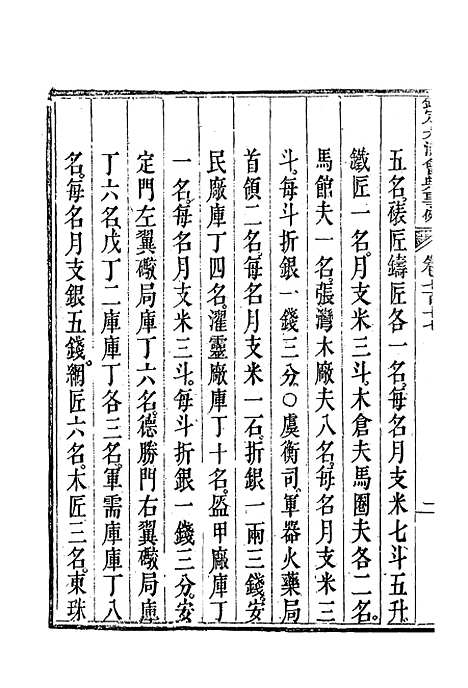 欽定大清會典事例 卷七百十七 二
五名。裱匠鑄匠各一名。每名月支米七斗五升。
鐵匠一名。月支米三斗。木倉夫馬圈夫各二名。
馬館夫一名。張灣木廠夫八名。每名月支米三
斗。每斗折銀一錢三分。○虞衡司。軍器火藥局
首領二名。每名月支米一石。折銀一兩三錢。安
民廠庫丁四名。濯靈廠庫丁十名。盔甲廠庫丁
一名。每名月支米三斗。每斗折銀一錢三分。安
定門左翼礮局庫丁六名。德勝門右翼礮局庫
丁六名。戊丁二庫庫丁各三名。軍需庫庫丁八
名。每名月支銀五錢。網匠六名。木匠三名。東珠